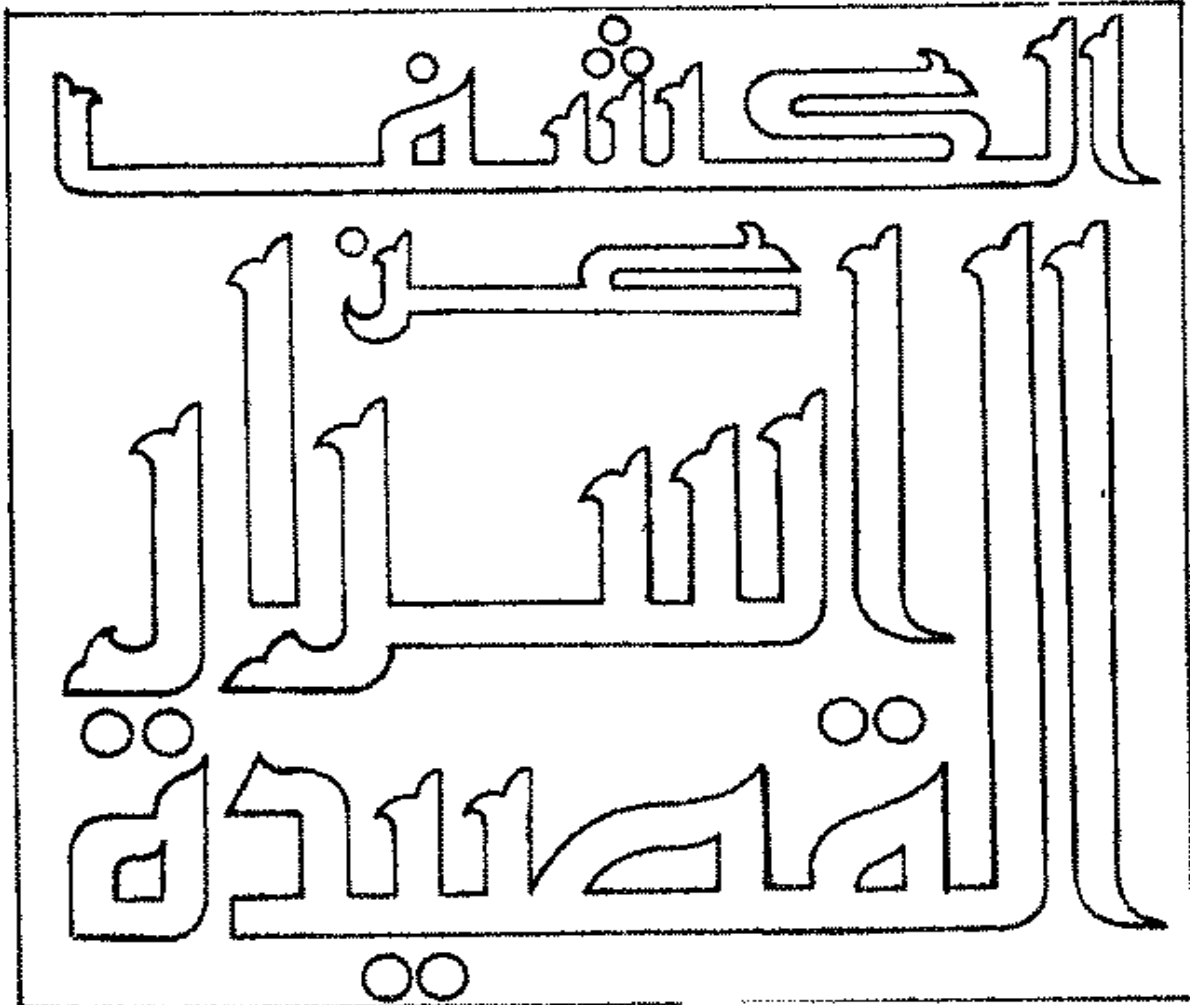 الكشف
عن
اسرار
القصيدة